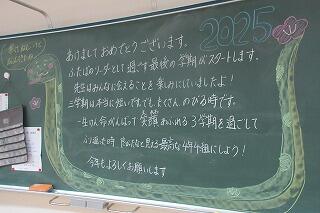 2025
あけましておめでとうございます。
ふたばのリーダーとして過ごす最後の学期がスタートします。
先生はみんなに会えることを楽しみにしていましたよ!
三学期は本当に短いですが、たくさんのびる時です。
一生けん命がんばって笑顔あふれる3学期を過ごして
ふり返った時
最高な4年 組にしよう!
今年もよろしくお願いします